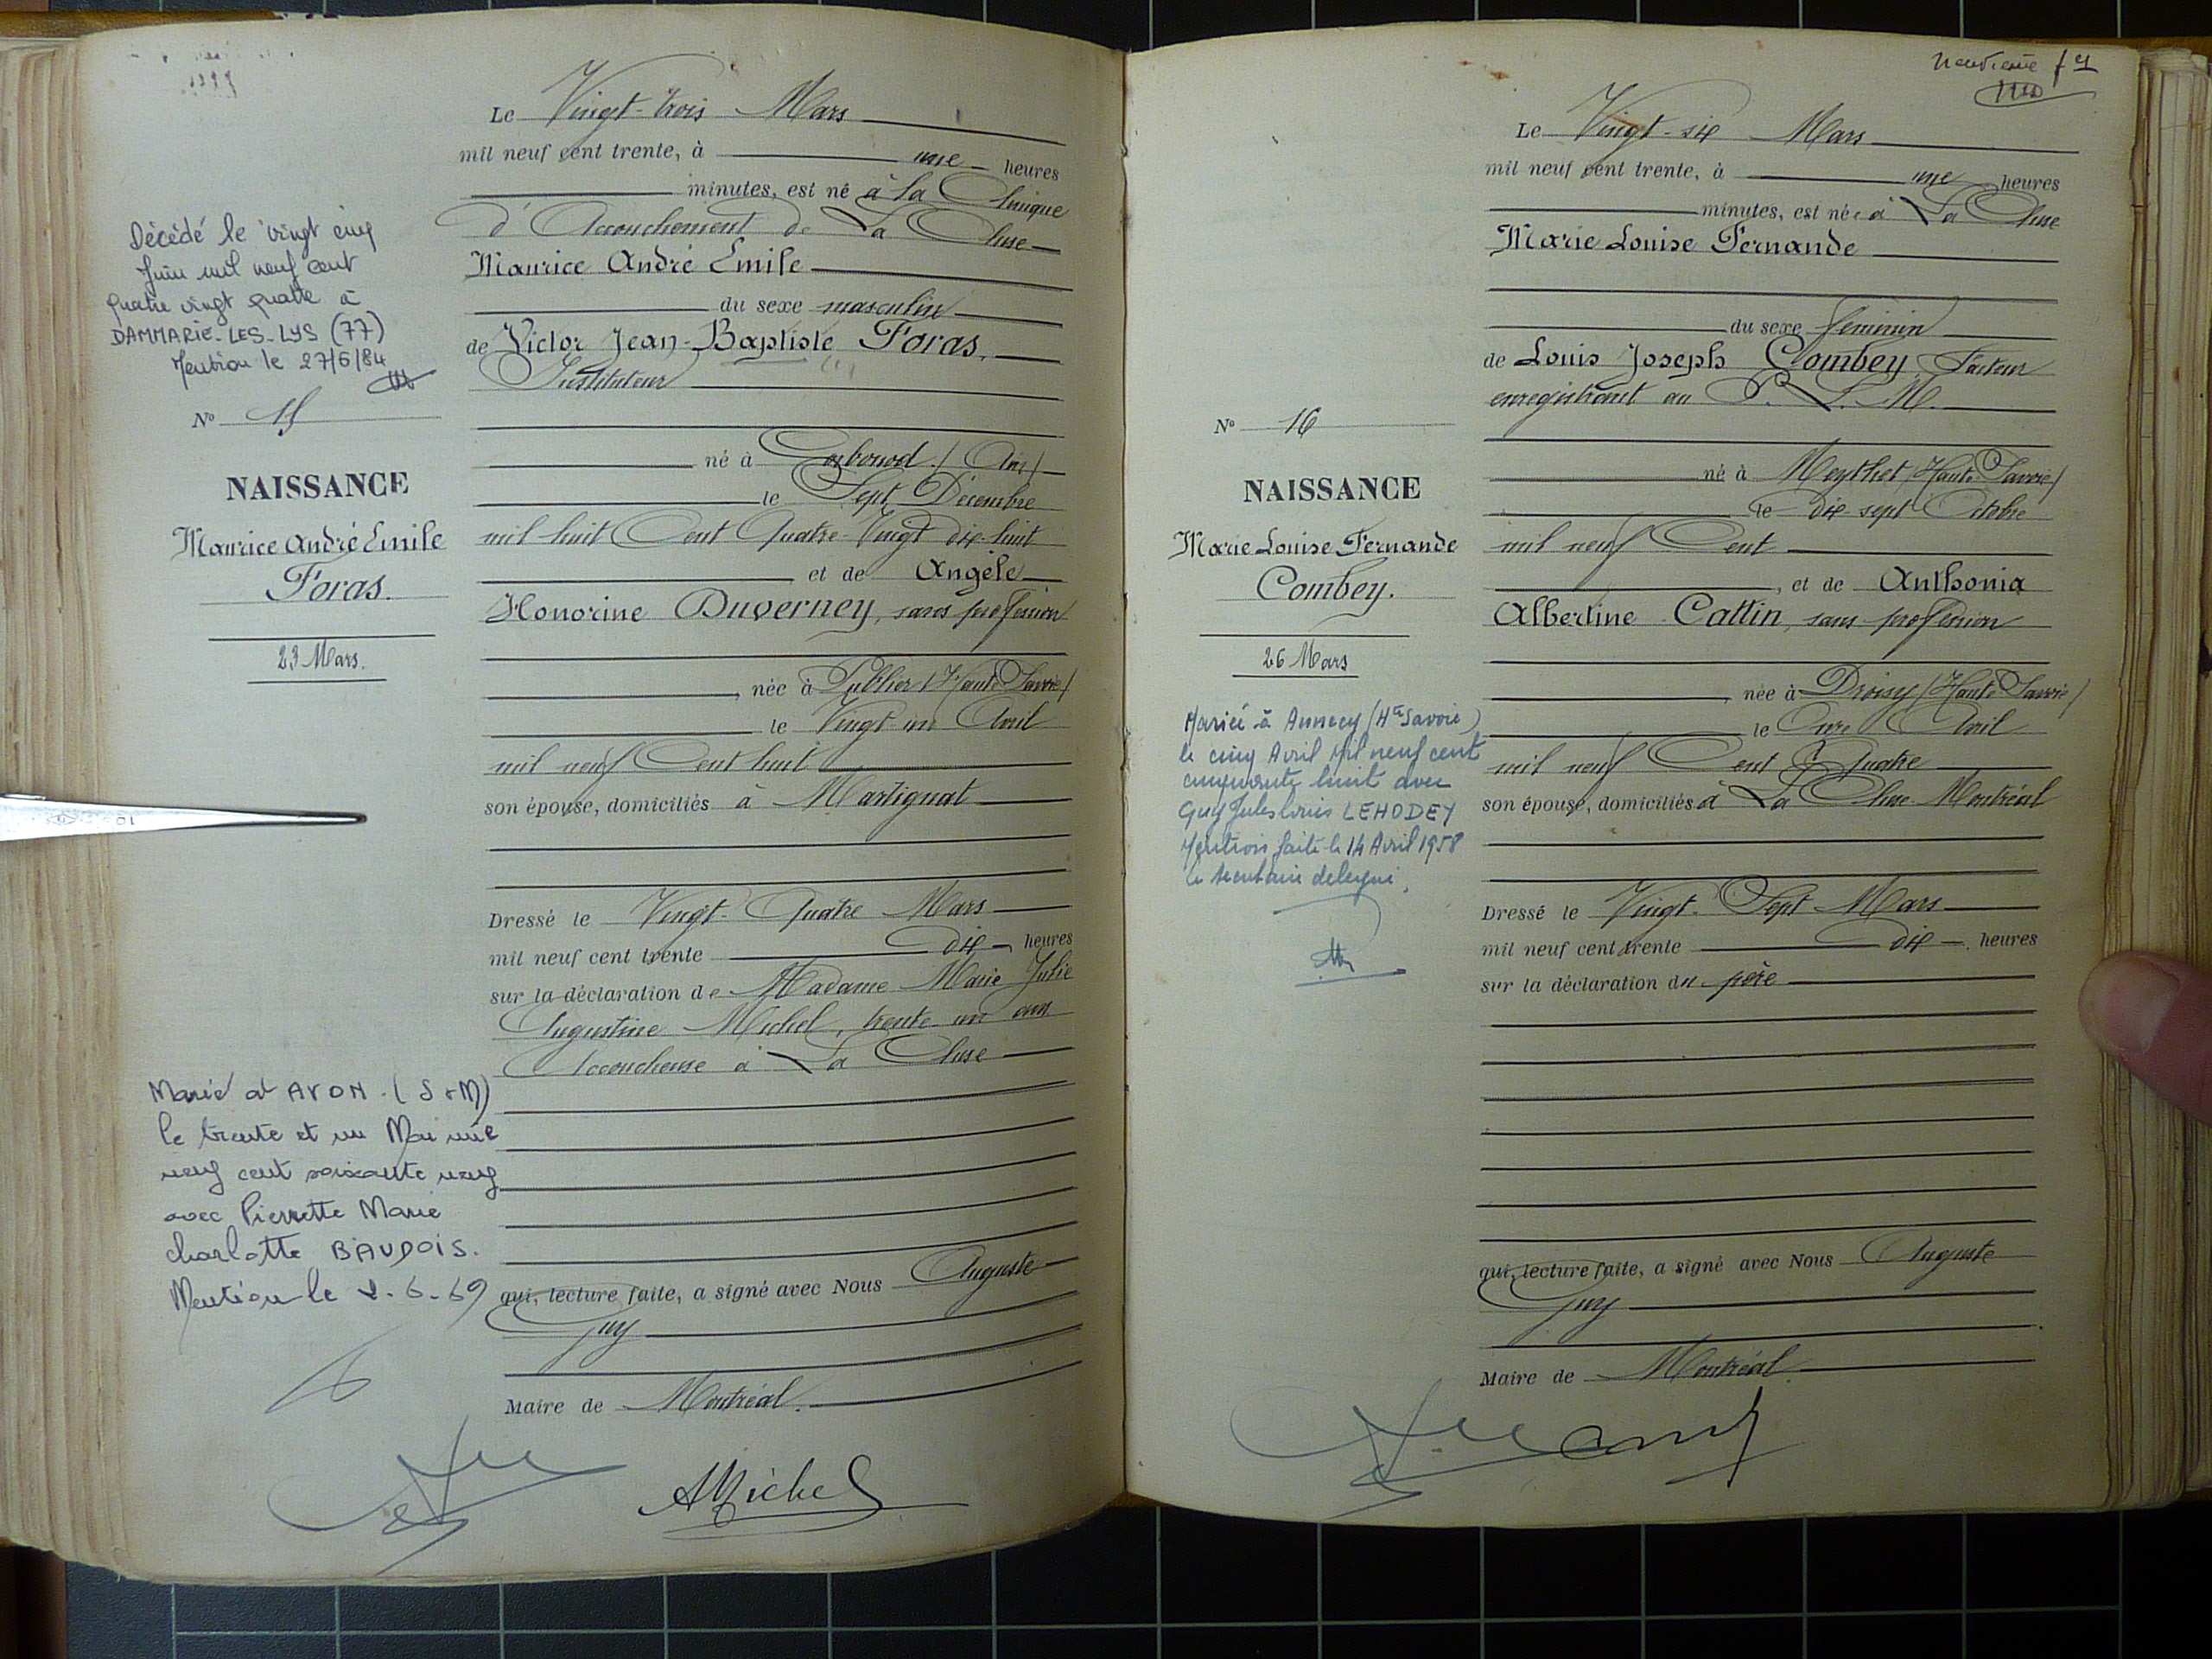 Le Vingt-trois Mars
mil neuf cent trente, à une heures
minutes, est né à la Clinique
d'Accouchement de La Cluse
Maurice André Emile
du sexe masculin
de Victor Jean-Baptiste Foras,
Instituteur
né à Corbonod (Ain)
le Sept Décembre
mil huit Cent Quatre-Vingt dix-huit
et de Angèle
Honorine Duverney, sans profession
née à Publier (Haute Savoie)
le Vingt-un Avril
mil neuf Cent huit
son épouse, domiciliés à Martignat
Dressé le Vingt-Quatre Mars
mil neuf cent trente dix heures
sur la déclaration de Madame Marie Julie
Augustine Michel, trente-un ans
Accoucheuse à La Cluse
qui, lecture faite, a signé avec Nous Auguste
Guy
Maire de Montréal.
AMichel
Décédé le vingt cinq
Juin mil neuf cent
quatre vingt quatre à
DAMMARIE-LES-LYS (77)
Mention le 27/6/84
No 15
NAISSANCE
Maurice André Emile
Foras.
23 Mars.
Marié à AVON (S & M)
le trente et un Mai mil
neuf cent soixante neuf
avec Pierrette Marie
Charlotte BAUDOIS.
Mention le 2.6.69
neuvième f 9
Le Vingt-six Mars
mil neuf cent trente, à une heures
minutes, est née à La Cluse
Marie Louise Fernande
du sexe féminin
de Louis Joseph Combey Facteur
enregistrant au P. L. M.
né à Meythet (Haute Savoie)
le dix-sept Octobre
mil neuf Cent
, et de Anthonia
Albertine Cattin, sans profession
née à Droisy (Haute Savoie)
le Onze Avril
mil neuf Cent Quatre
son épouse, domiciliés à La Cluse-Montréal
Dressé le Vingt-Sept Mars
mil neuf cent trente dix heures
sur la déclaration du père
qui, lecture faite, a signé avec Nous Auguste
Guy
Maire de Montréal.
No 16
NAISSANCE
Marie Louise Fernande
Combey.
26 Mars
Mariée à Annecy (Hte Savoie)
le cinq Avril mil neuf cent
cinquante huit avec
Guy Jules Louis LEHODEY
Mention faite le 14 Avril 1958
le secrétaire délégué,